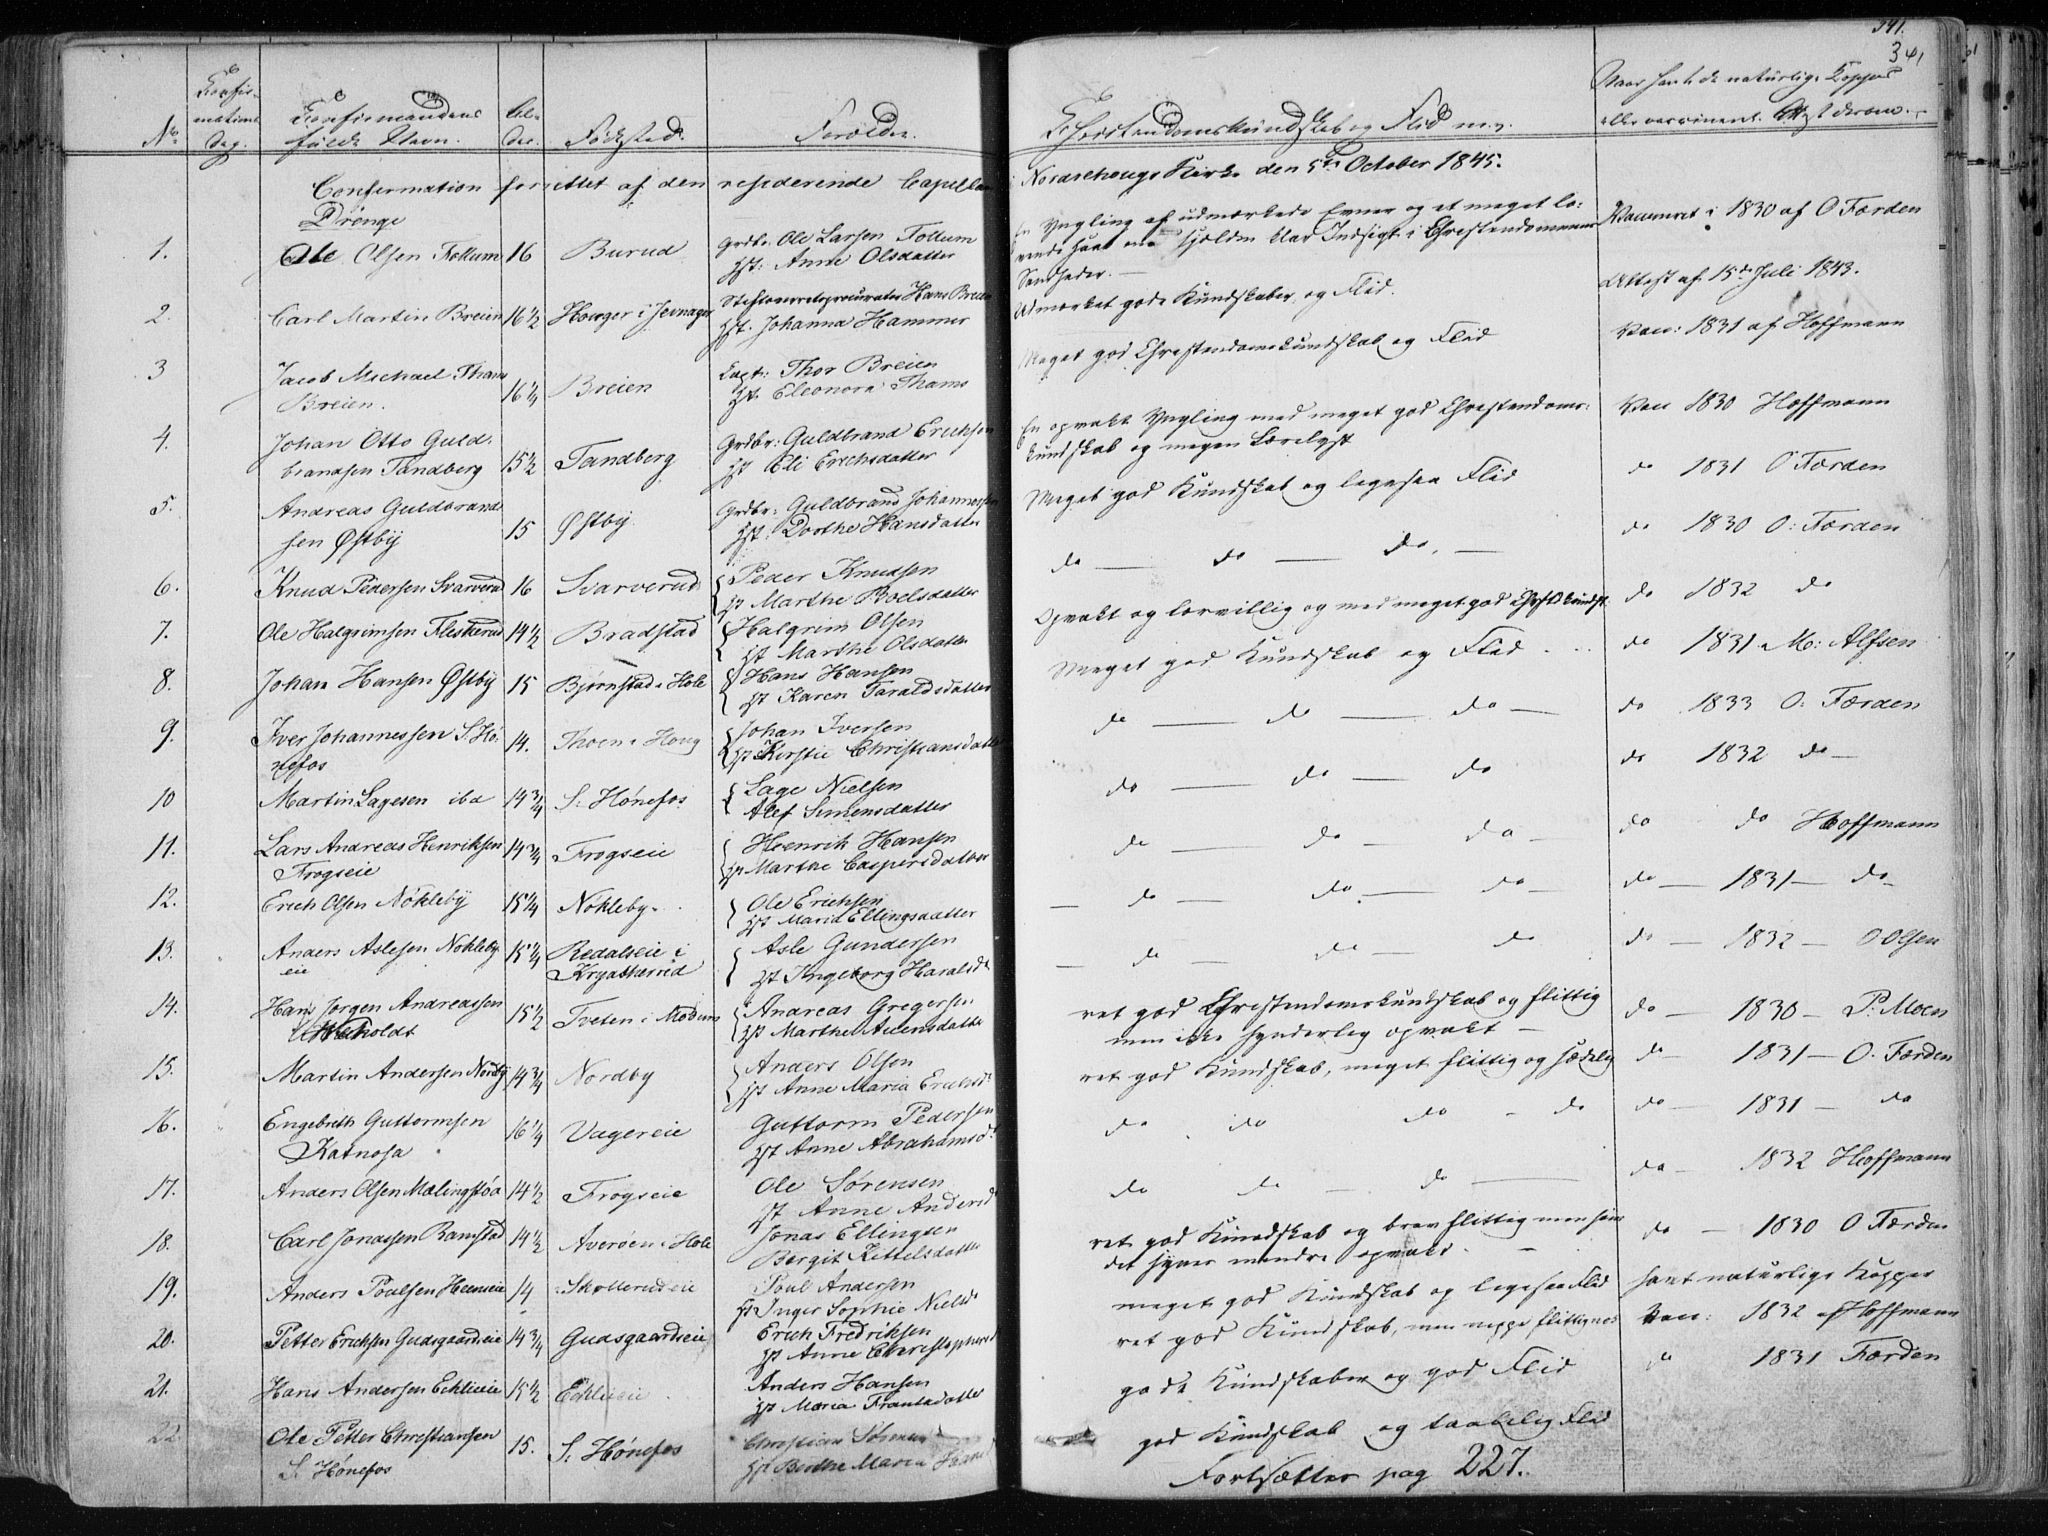 341.
341
No
Confir-
mations
Dag.
Confirmandens
fulde Navn.
Al-
der.
Fødested.
Forældre.
Christendomskundskab og Flid m.v.
Naar havt de naturlige Kopper
eller vaccineret. Attest derom.
Confirmation forrettet af den residerende Capellan i Norderhougs Kirke den 5te October 1845.
Drenge
1. Ole Olsen Follum 16 Burud Grdbr. Ole Larsen Follum
Hst: Anne Olsdatter
En Yngling af udmærkede Evner og et meget lo-
vende Haab med sjelden klar Indsigt i Christendommens
Sandheder.
Vaccineret i 1830 af O Færden
2. Carl Martin Breien 16½ Houger i Jevnager Hans Breien
Hst. Johanna Hammer
Udmærket gode Kundskaber og Flid.
Attest af 15de Juli 1843.
3 Jacob Michael Thams
Breien. 16¼ Breien Capt: Thor Breien
Hst. Eleonora Thams
Meget god Christendomskundskab og Flid
Vac: 1831 af Hoffmann
4. Johan Otto Guld-
brandsen Tandberg 15½ Tandberg Grdbr: Guldbrand Erichsen
Hst Eli Erichsdatter
En opvakt Yngling med meget god Christendoms-
kundskab og megen Lærelyst
Vac 1830 Hoffmann
5. Andreas Guldbrand-
sen Østby 15 Østby Grdbr: Guldbrand Johannessen
Hst: Dorthe Hansdatter
Meget god Kundskab og ligesaa Flid
do 1831 O Færden
6. Knud Pedersen Svarverud 16 Svarverud Peder Knudsen
Hst Marthe Boelsdatter
do — do — do. —
do 1830 O: Færden
7. Ole Halgrimsen Fleskerud 14½ Bradstad Halgrim Olsen
Hst Marthe Olsdatter
Opvakt og lærvillig og med meget god Christd.kundsk.
do 1832 do
8. Johan Hansen Østby 15 Bjørnstad i Hole Hans Hansen
Hst Karen Taraldsdatter
Meget god Kundskab og Flid
do 1831 M: Alfsen
9. Iver Johannessen S. Hø-
nefos 14. Thoen i Houg Johan Iversen
Hst Kirstie Christiansdatter
do — do — do —
do 1833 O. Færden
10 Martin Lagesen ibd 14¾ S. Hønefos Lage Nielsen
Alef Simensdatter
do — do — do
do 1832 do —
11. Lars Andreas Henriksen
Frogseie 14¾ Frogseie Henrik Hansen
Hst Marthe Caspersdatter
do — do — do —
do do Hoffmann
12. Erich Olsen Nökleby 15¼ Nokleby. Ole Erichsen
Hst Maria Ellingsdatter
— do — do — do —
do — 1831 — do
13. Anders Aslesen Nokleby
eie 15¼ Redalseie i
Krydsherred Asle Gundersen
Hst Ingeborg Haralsd.
— do — do — do
do — 1832 — O Olsen
14. Hans Jørgen Andreassen
15½ Tveten i Modum Andreas Gregersen
Hst Marthe
ret god Christendomskundskab og flittig
men ikke synderlig opvakt —
do — 1830 — P: Moen
15. Martin Andersen Nordby 14¾ Nordby Anders Olsen
Hst Anne Maria Erichsd.
ret god Kundskab, meget flittig og sædelig
do — 1831 — O. Færden
16. Engebreth Guttormsen
Katnosa 16¼ Vagereie Guttorm Pedersen
Hst Anne Abrahamsd.
do . do do - do
do — 1831 — do
17. Anders Olsen Mælingstøa 14½ Frogseie Ole Sørensen
Hst Anne Andersd
do do — do —
do — 1832 Hoffmann
18. Carl Jonassen Ramstad 14½ Averøen i Hole Jonas Ellingsen
Bergit Kittelsdatter
ret god Kundskab og brav flittig men som
det synes mindre opvakt. —
do — 1830 O Færden
19. Anders Poulsen Heieneie 14 Skollerudeie Poul Andersen
Hst Inger Sophie Nielsd.
meget god Kundskab og ligesaa Flid
havt naturlige Kopper
20. Petter Erichsen Gudsgaardseie 14¾ Gudsgaardseie Erich Fredriksen
Hst Anne Christophersd
ret god Kundskab, men neppe flittig nok
Vac: 1832 af Hoffmann
21. Hans Andersen Eklieeie 15½ Eklieeie Anders Hansen
Hst Maria Frantsdatter
gode Kundskaber og god Flid
do 1831 Færden
22 Ole Petter Christiansen
S. Hønefos 15. S. Hønefos Christian Sørensen
Hst Berthe Maria
god Kundskab og taalelig Flid
Fortsættes pag 227.